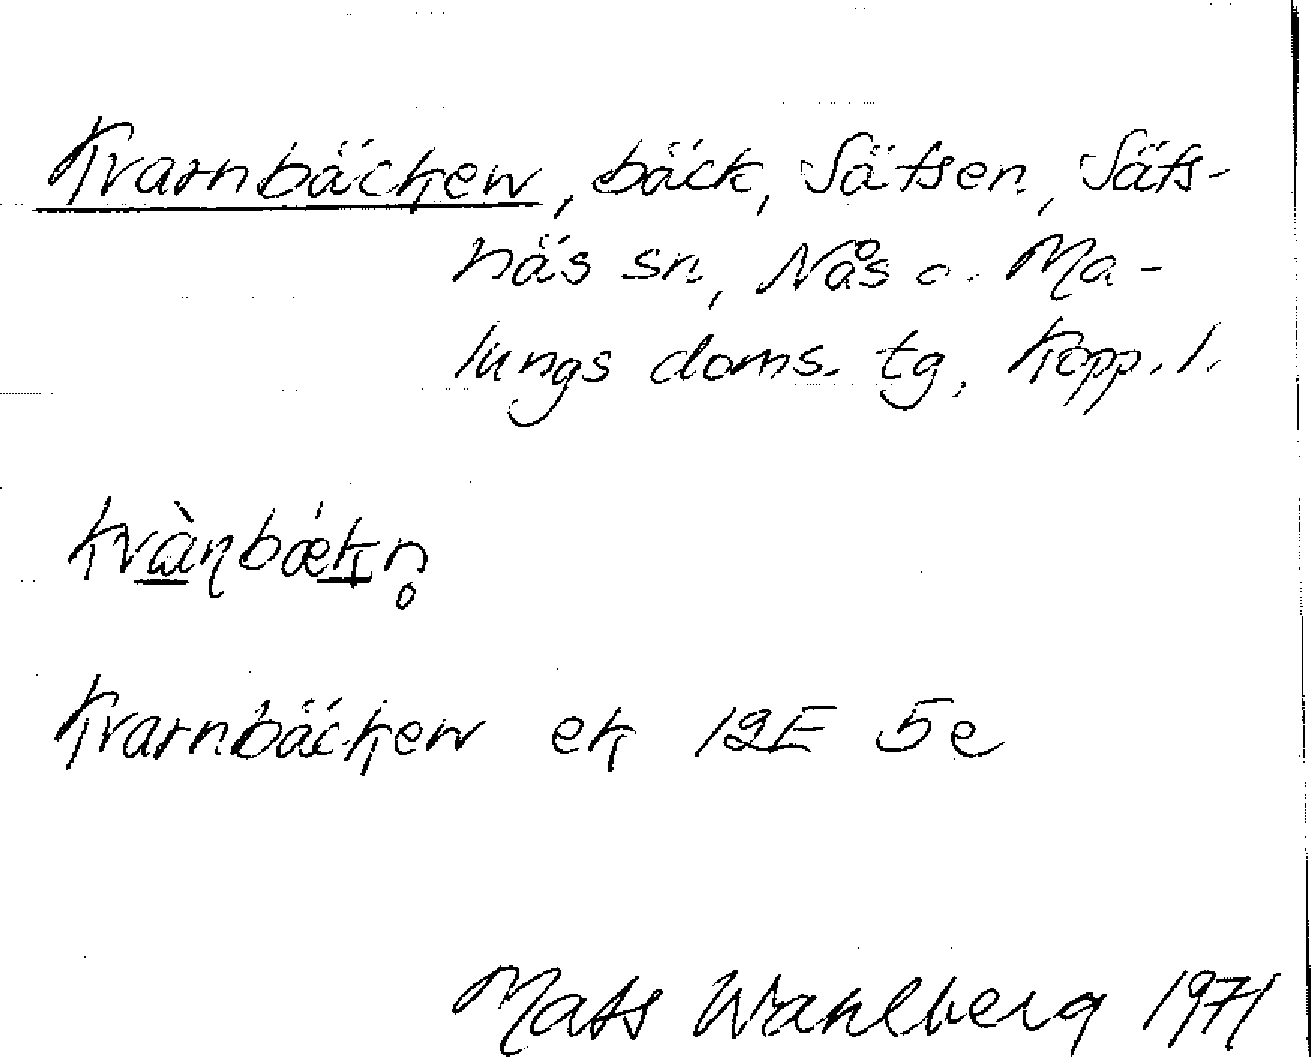 Kvarnbäcken, bäck, Sätsen, Säfs-
näs sn, Nås o. Ma-
lungs doms. tg, Kopp. l.
kvàɳbǽkn̥
Kvarnbäcken ek 12E 5e
Mats Wahlberg 1971